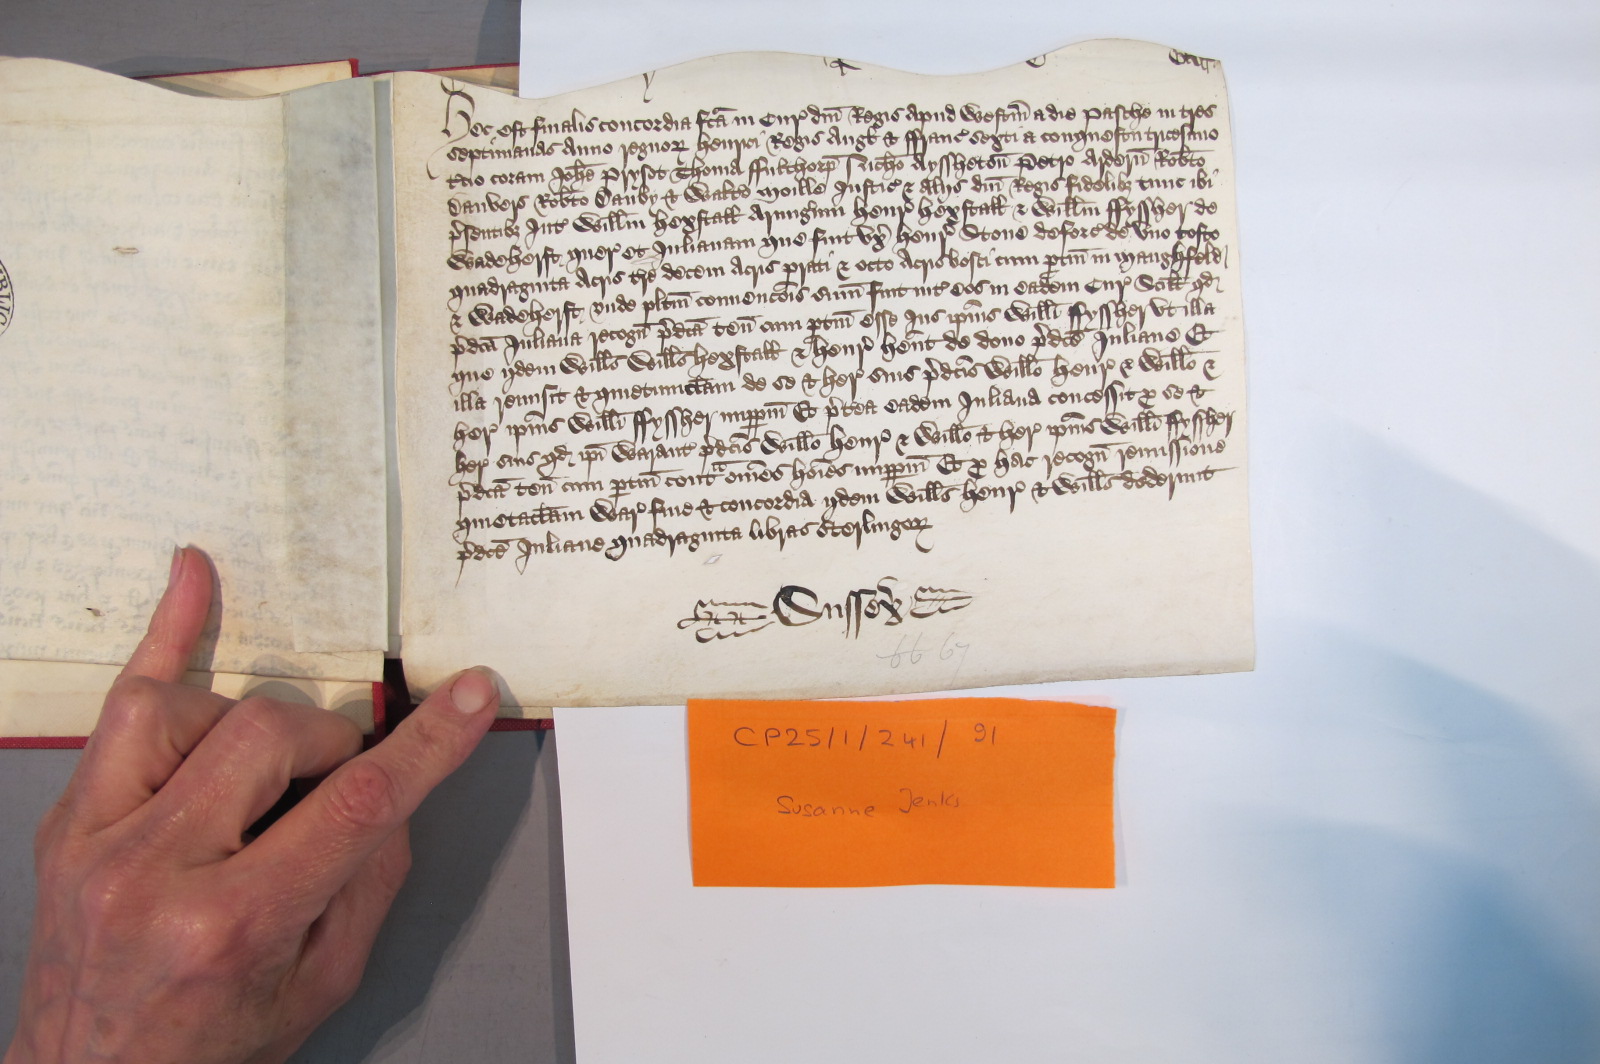 Hec est finalis concordia fc̄a in Cur' dn̄i Regis apud Westm̄ a die Pasche in tres
septimanas Anno regnor' Henrici Regis Angl' & Ffranc' sexti a conquestu tricesimo
t'cio coram Joh̄e Prysot Thoma Ffulthorp' Nich̄o Ayssheton̄ Petro Ardern̄ Rob̄to
Danvers Rob̄to Danby & Walt'o Moille Justic' & alijs dn̄i Regis fidelib; tunc ibi
p'sentib; Int' Willm̄ Hexstall Armig'um Henr' Hexstall & Willm̄ Ffyssher de
Wadeherst quer' et Julianam que fuit vx' Henr' Stone deforc' de vno tosto
quadraginta acris t're decem acris prati & octo acris bosci cum p'tin̄ in Maughfeld'
& Wadeherst vnde pl'itm̄ convenc̄ois sum̄ fuit int' eos in eadem Cur' Scil't qd'
p'dc̄a Juliana recogn̄ p'dc̄a ten̄ cum p'tin̄ esse Jus ip̄ius Willi Ffyssher vt illa
que ijdem Will's Will's Hexstall & Henr' hēnt de dono p'dc̄e Juliane Et
illa remisit & quietumclam̄ de se & her' suis p'dc̄is Willo Henr' & Willo &
her' ip̄ius Willi Ffyssher imp'p'm̄ Et p't'ea eadem Juliana concessit p' se &
her' suis qd' ip̄i Warant' p'dc̄is Willo Henr' & Willo & her' ip̄ius Willi Ffyssher
p'dc̄a ten̄ cum p'tin̄ contᵃ om̄es hōies imp'p'm̄ Et p' hac recogn̄ remissione
quietaclam̄ War' fine & concordia ijdem Will's Henr' & Will's dederunt
p'dc̄e Juliane quadraginta libras sterlingor'
Sussex'
66 67
CP25/1/241/ 91
Susanne Jenks